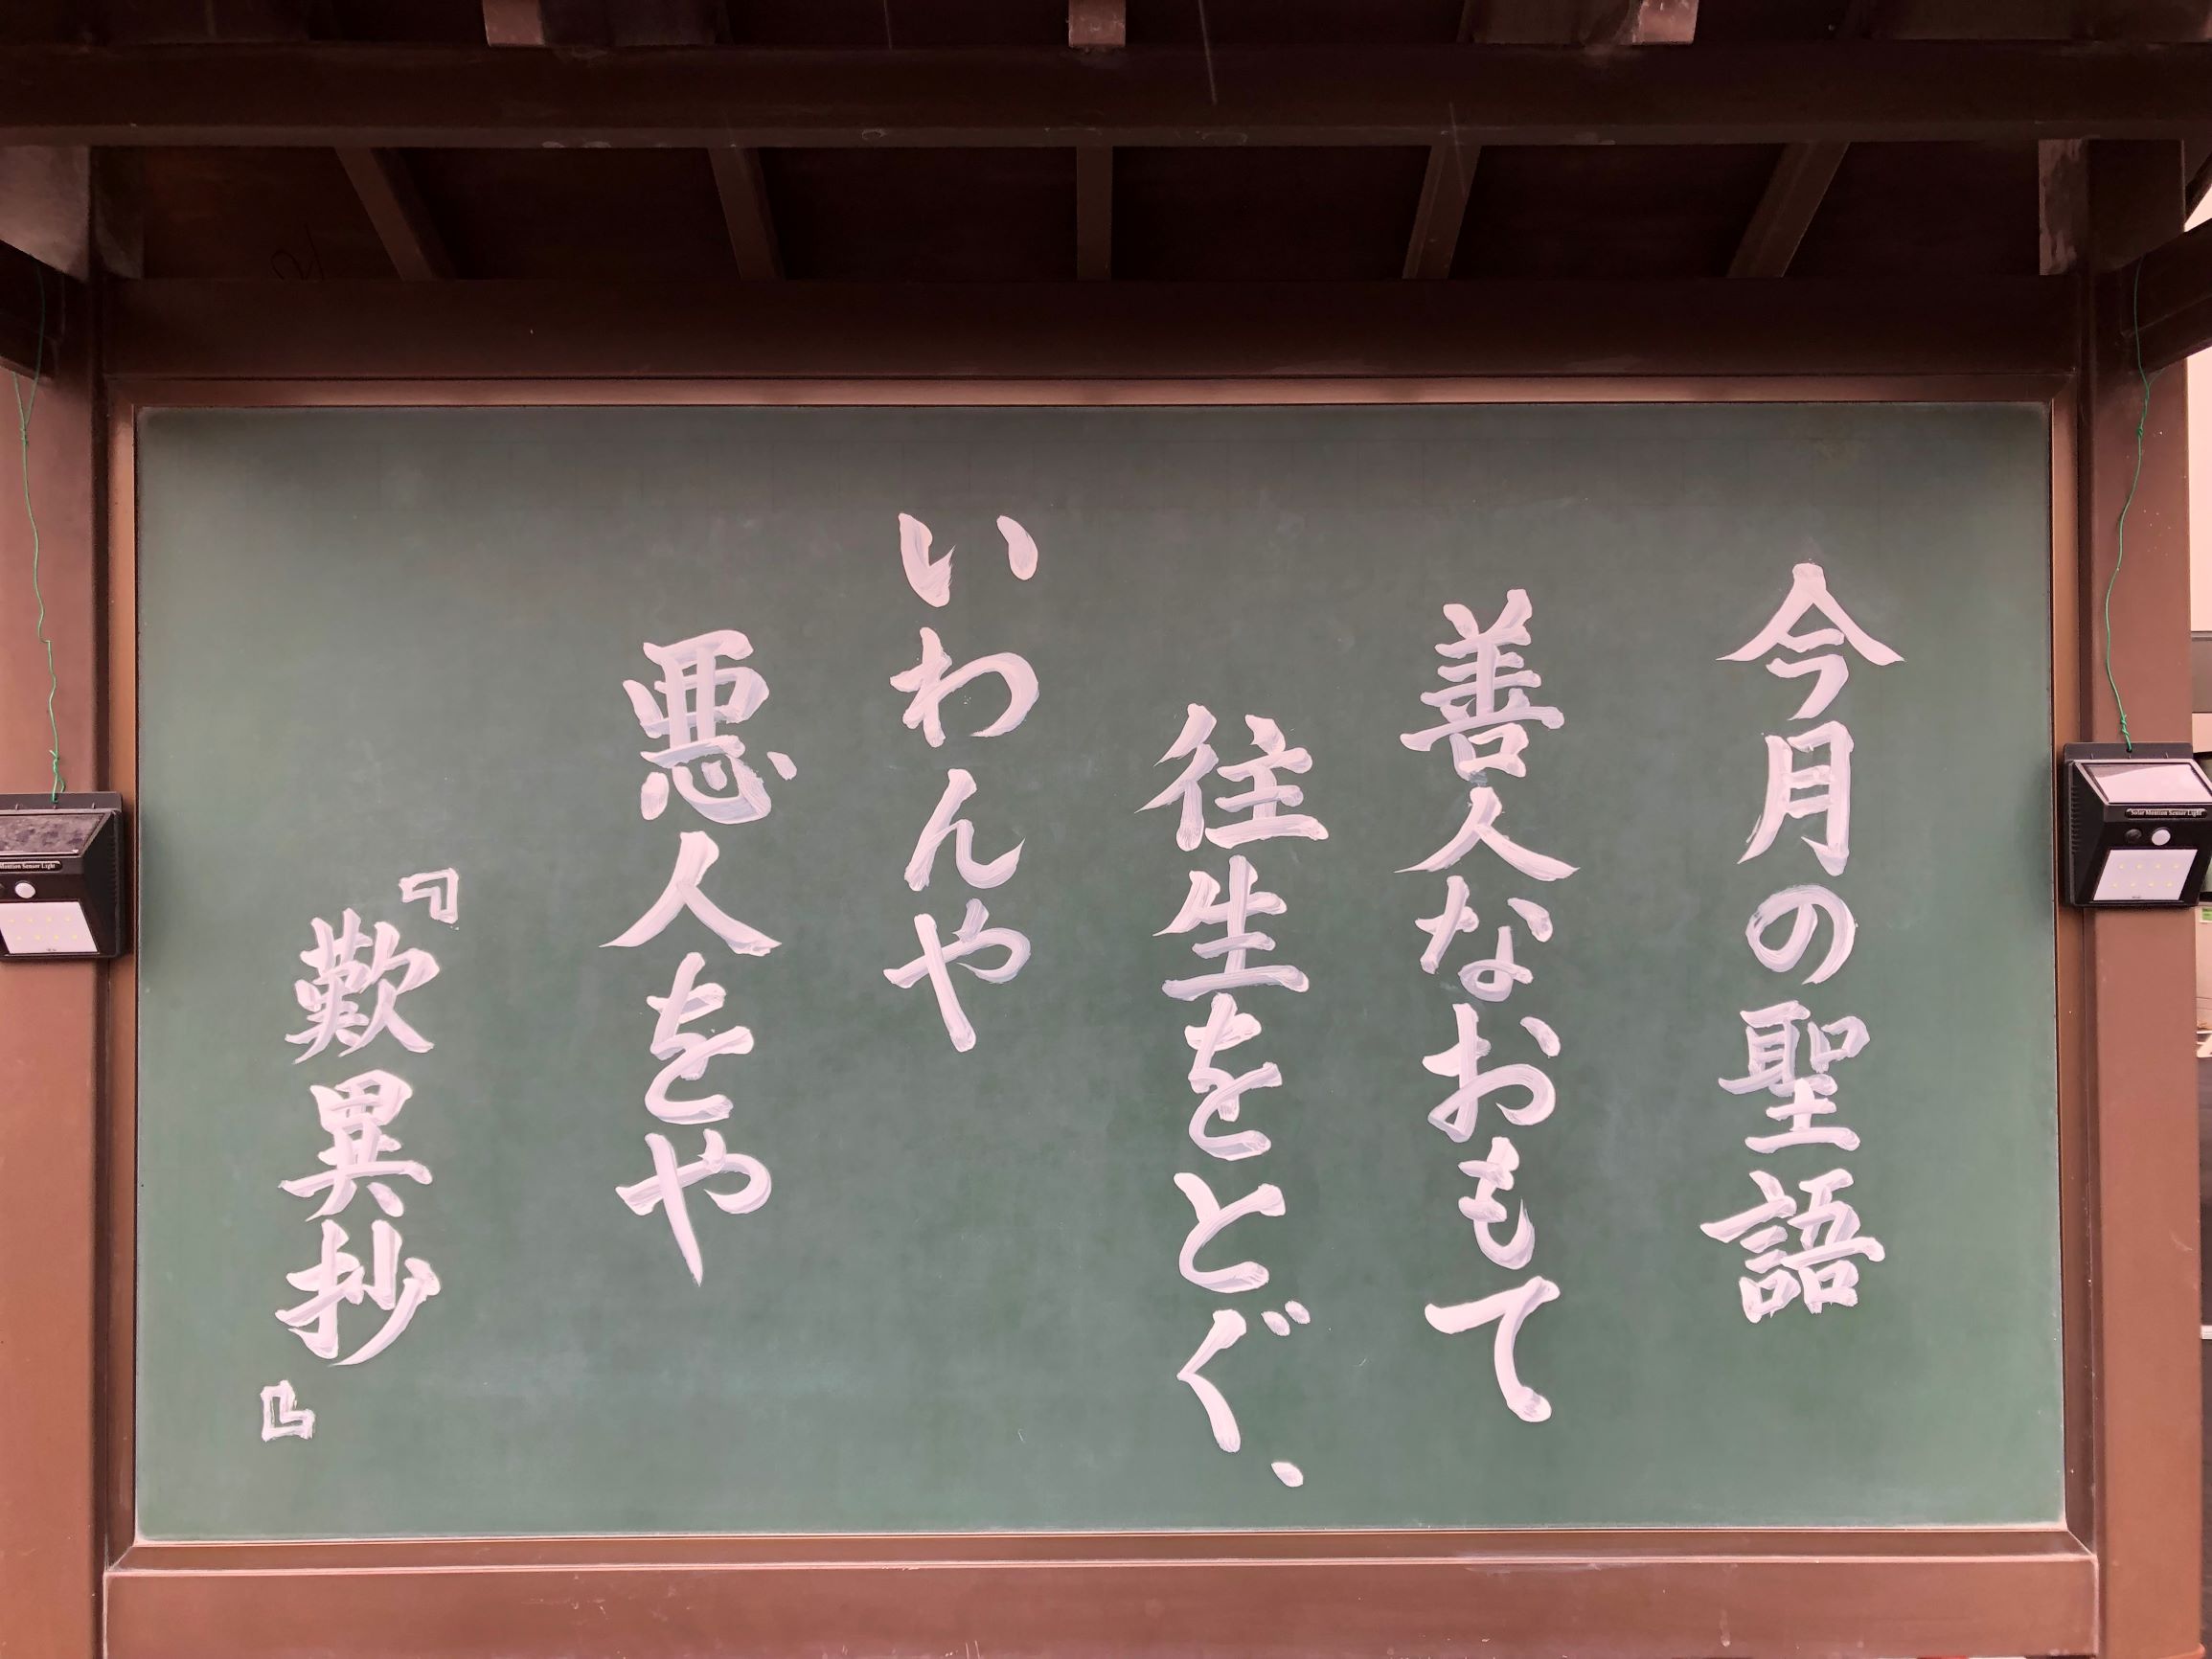 今月の聖語
善人なおもて
往生をとぐ、
いわんや
悪人をや
『歎異抄』
Solar Montion Sensor Light
Montion Sensor Light